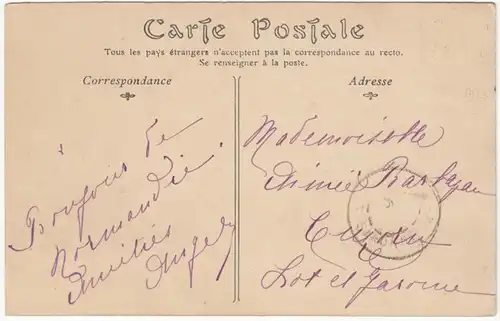 Carte Postale
Tous les pays étrangers n'acceptent pas la correspondance au recto.
Se renseigner à la poste.
Correspondance
Adresse
Bonjour de
Normandie
Amitiés
Angel
Mademoiselle
Aimée
Lot et Garonne